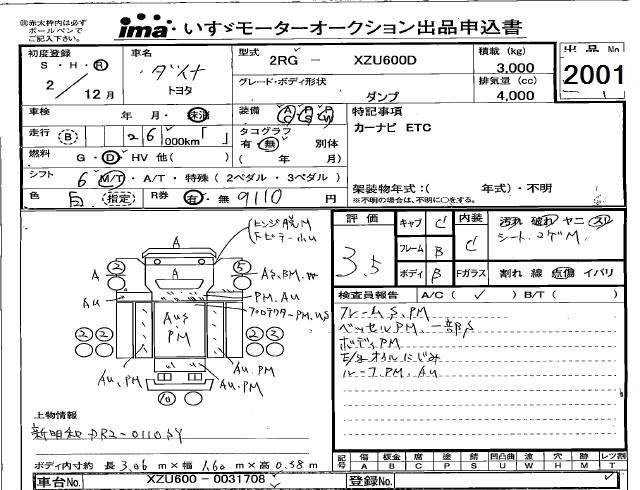 ㊟赤太枠内は必ず
ボールペンで
ご記入下さい。
ima いすゞモーターオークション出品申込書
初度登録
S・H・R
2/12月
車名
ダイナ
トヨタ
型式
2RG － XZU600D
グレード・ボディ形状
ダンプ
積載 (kg)
3,000
排気量 (cc)
4,000
出品No
2001
車検 年 月・抹消
装備 AC PS PW
特記事項
カーナビ ETC
走行 B 26 000km「 」
タコグラフ
有・無 別体
( 年 月)
燃料 G・D・HV 他( )
シフト 6 M/T・A/T・特殊(2ペダル・3ペダル)
架装物年式:( 年式)・不明
※不明の場合は、不明に○をする。
色 白 指定 R券 有・無 9110 円
評価
3.5
キャブ C
フレーム B
ボディ B
内装 C
Fガラス
汚れ 破れ ヤニ スリ
シート、コゲM
割れ 線 点傷 イバリ
検査員報告 A/C( ✓ ) B/T( )
フレームS,PM
ベッセルPM,一部S
ボディPM
E/gオイルにじみ
ルーフ,PM,Au
A
A
A 2 5
Au
PM.Au
AuS
PM
2 2
2 2
Au.PM
Au.PM
Au.PM
10
上物情報
新明和 DR2-0110SY
ボディ内寸約 長 3.06 m×幅 1.60 m×高 0.38 m
記号
傷 板金 腐 塗 錆 凹凸曲 波 穴 跡 レツ割
A B C P S U W H M T
車台No. XZU600－0031708
登録No.